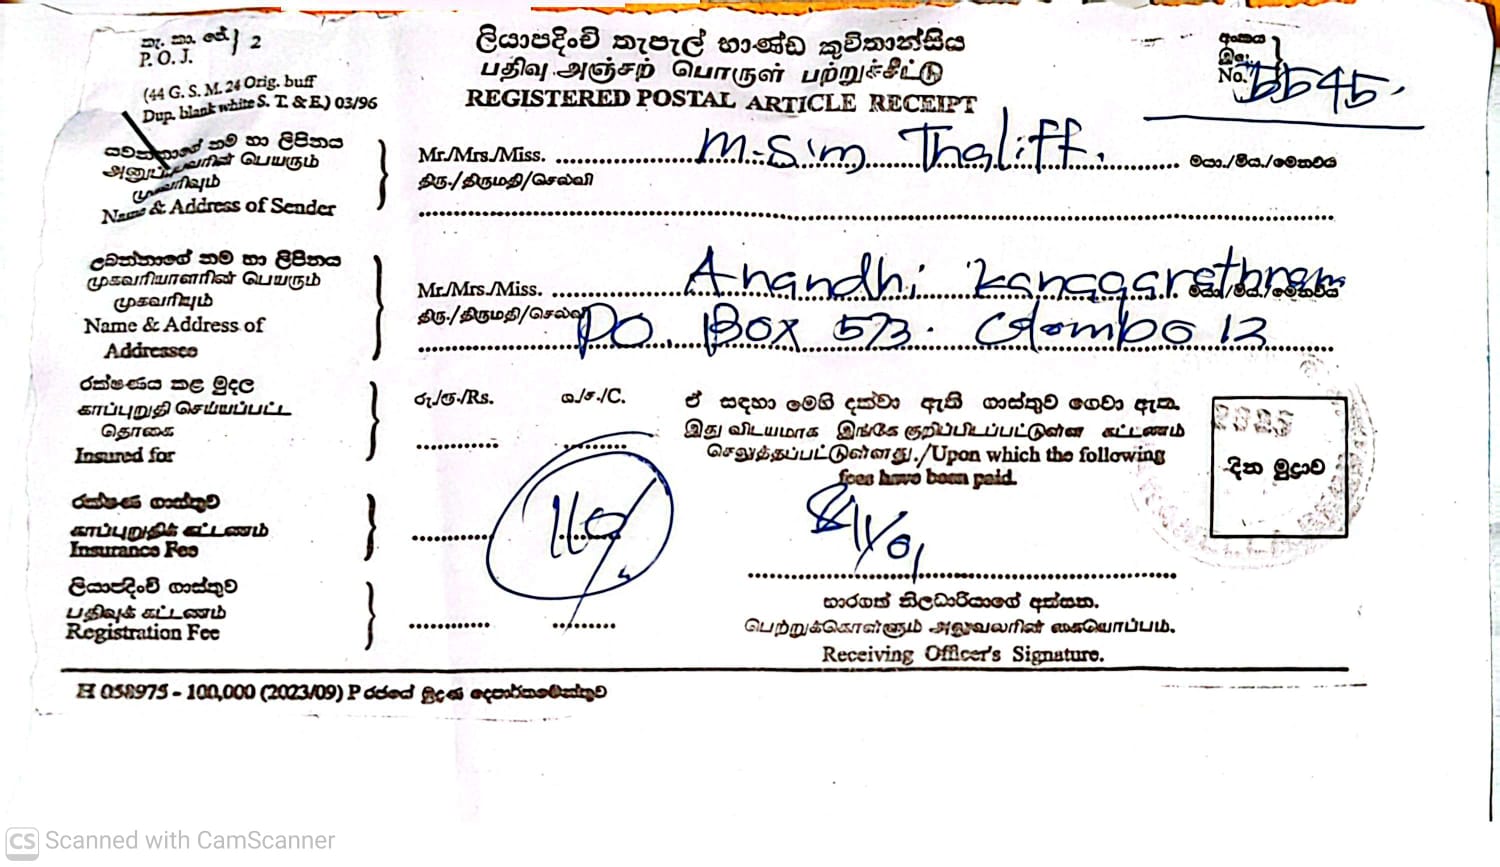 තැ. කා. ජේ. } 2
P. O. J.
(44 G. S. M. 24 Orig. buff
Dup. blank white S. T. & E.) 03/96
ලියාපදිංචි තැපැල් භාණ්ඩ කුවිතාන්සිය
பதிவு அஞ்சற் பொருள் பற்றுச்சீட்டு
REGISTERED POSTAL ARTICLE RECEIPT
අංකය
இல.
No. 5545.
යවන්නාගේ නම හා ලිපිනය
அனுப்புபவரின் பெயரும்
முகவரியும்
Name & Address of Sender
Mr./Mrs./Miss. M.S.im Thaliff. මයා./මිය./මෙනවිය
திரு./திருமதி/செல்வி
ලබන්නාගේ නම හා ලිපිනය
முகவரியாளரின் பெயரும்
முகவரியும்
Name & Address of
Addressee
Mr./Mrs./Miss. Anandhi Kanagarathnam මයා./මිය./මෙනවිය
திரு./திருமதி/செல்வி PO. Box 573. Colombo 12
රක්ෂණය කළ මුදල
காப்புறுதி செய்யப்பட்ட
தொகை
Insured for
රු./ரூ./Rs. ශ./ச./C.
ඒ සඳහා මෙහි දක්වා ඇති ගාස්තුව ගෙවා ඇත.
இது விடயமாக இங்கே குறிப்பிடப்பட்டுள்ள கட்டணம்
செலுத்தப்பட்டுள்ளது./Upon which the following
fees have been paid.
දින මුද්‍රාව
රක්ෂණ ගාස්තුව
காப்புறுதிக் கட்டணம்
Insurance Fee
110/
ලියාපදිංචි ගාස්තුව
பதிவுக் கட்டணம்
Registration Fee
භාරගත් නිලධාරියාගේ අත්සන.
பெற்றுக்கொள்ளும் அலுவலரின் கையொப்பம்.
Receiving Officer's Signature.
H 058975 - 100,000 (2023/09) P රජයේ මුද්‍රණ දෙපාර්තමේන්තුව
CS Scanned with CamScanner